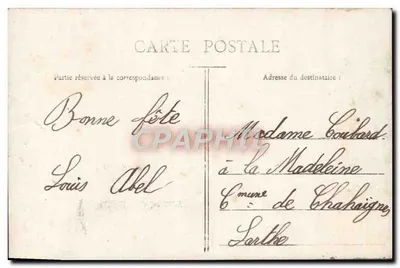 CARTE POSTALE
Partie réservée à la correspondance :
Adresse du destinataire :
Bonne fête
Louis Abel
CPARAMA
Madame Coubard
à la Madeleine
Cmune de Chahaignes
Sarthe